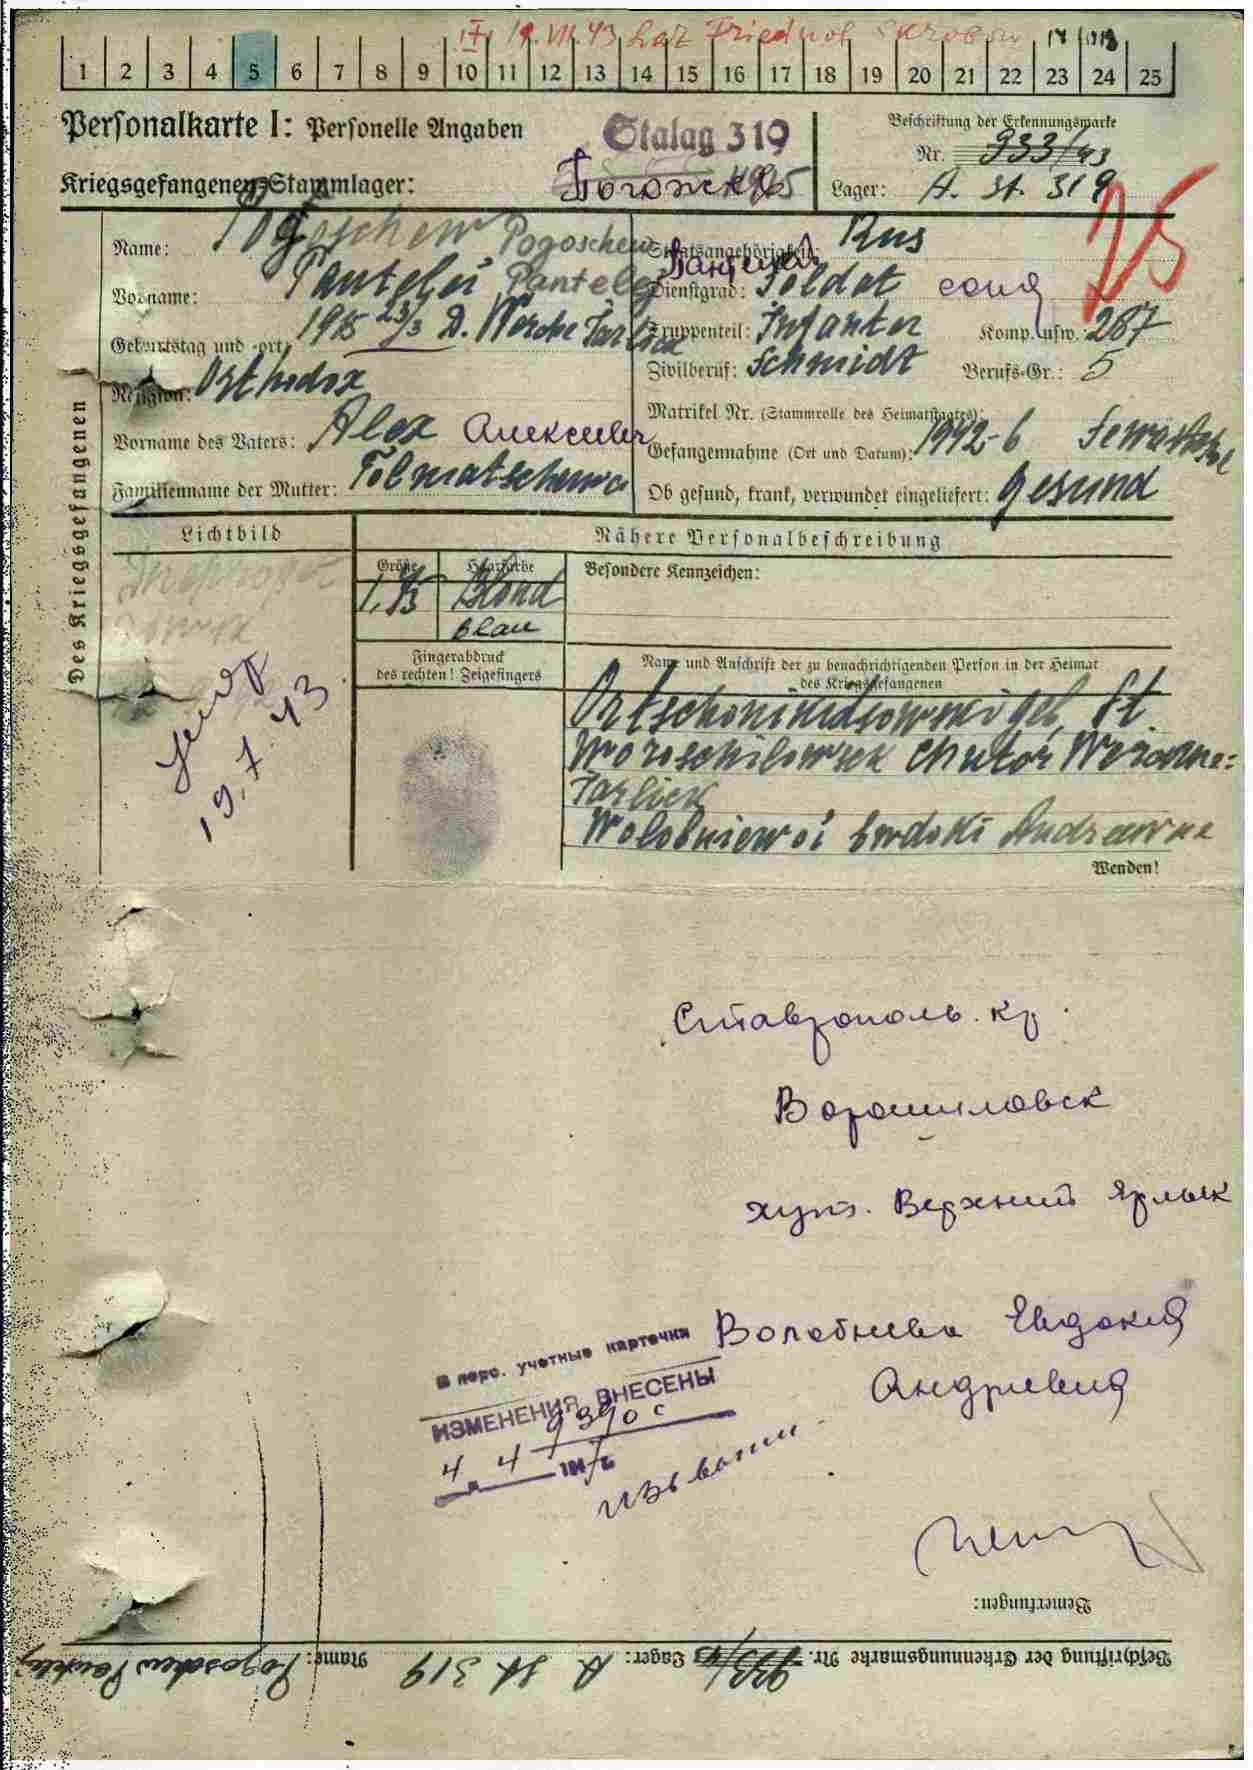 IV. 19.VII.43 Laz Friedhof
1 2 3 4 5 6 7 8 9 10 11 12 13 14 15 16 17 18 19 20 21 22 23 24 25
Personalkarte I: Personelle Angaben
Stalag 319
Beschriftung der Erkennungsmarke
Nr. 933/43
Kriegsgefangenen-Stammlager:
Lager: A. St. 319
25
Name: Pogoschew Pogoschew
Staatsangehörigkeit: Rus
Vorname: Pantelei Pantelej
Пантелей
Dienstgrad: Soldat солд
Geburtstag und -ort: 1915 23/3 D.
Truppenteil: Infanter Komp. usw.: 287
Zivilberuf: Schmidt Berufs-Gr.: 5
Religion: Orthodox
Matrikel Nr. (Stammrolle des Heimatstaates):
Vorname des Vaters: Alex Алексеевич
Gefangennahme (Ort und Datum): 1942-6
Familienname der Mutter: Tolmatschewa
Ob gesund, krank, verwundet eingeliefert: Gesund
Des Kriegsgefangenen
Lichtbild
Nähere Personalbeschreibung
Größe
Haarfarbe
Besondere Kennzeichen:
Blond
blau
Fingerabdruck
des rechten! Zeigefingers
Name und Anschrift der zu benachrichtigenden Person in der Heimat
des Kriegsgefangenen
19.7.43
Ortschonikidsowski geb. St.
Woroschilowsk Chutor
Jarlick
Wendent!
Ставрополь. кр.
Ворошиловск
хут. Верхний Ярлык
Волобнева Евдокия
Андриевна
В перс. учетные карточки
ИЗМЕНЕНИЯ ВНЕСЕНЫ
9390с
4 4 194
Bemerkungen:
Beschriftung der Erkennungsmarke Nr. 933/43 Lager: A St 319 Name: Pogoschew Pantelej